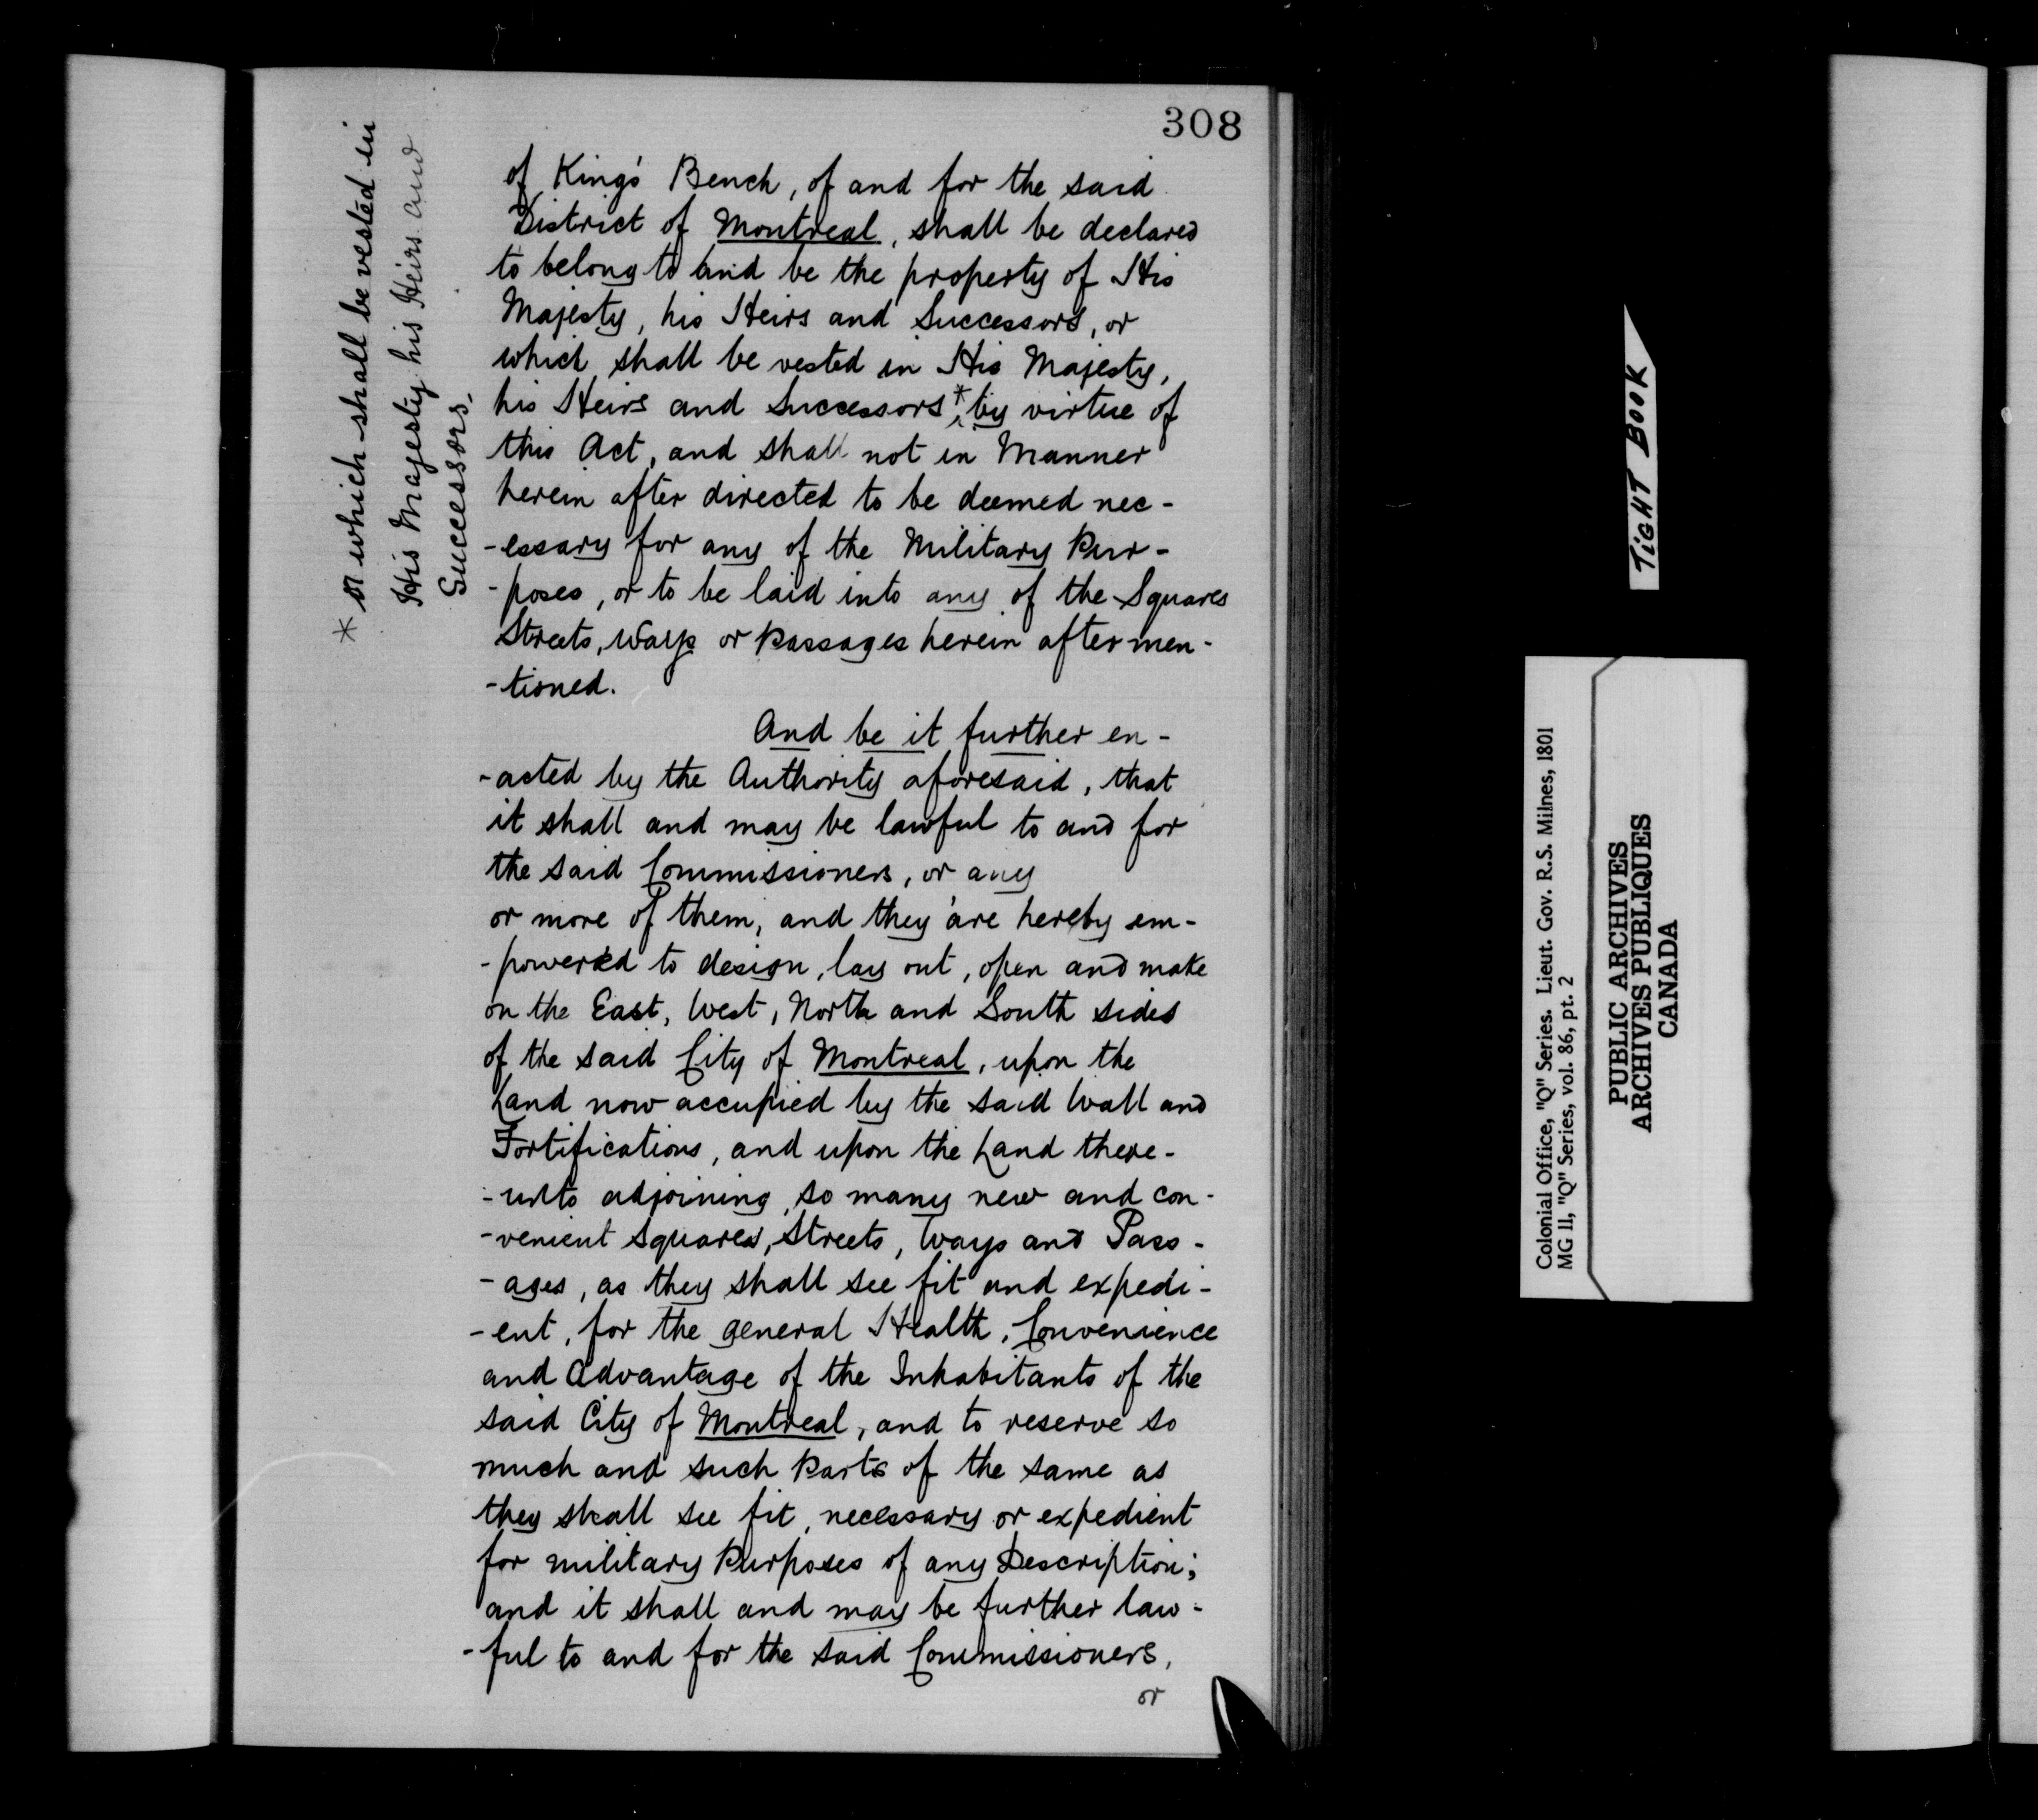 308
of King's Bench, of and for the said
District of Montreal, shall be declared
to belong to and be the property of His
Majesty, his Heirs and Successors, or
which shall be vested in His Majesty,
his Heirs and Successors,* by virtue of
this Act, and shall not in Manner
herein after directed to be deemed nec-
-essary for any of the Military Pur-
-poses, or to be laid into any of the Squares
Streets, Ways or Passages herein after men-
-tioned.
And be it further en-
-acted by the Authority aforesaid, that
it shall and may be lawful to and for
the said Commissioners, or any
or more of them, and they are hereby em-
-powered to design, lay out, open and make
on the East, West, North and South sides
of the said City of Montreal, upon the
Land now occupied by the said Wall and
Fortifications, and upon the Land there-
-unto adjoining, so many new and con-
-venient Squares, Streets, Ways and Pass-
-ages, as they shall see fit and expedi-
-ent, for the general Health, Convenience
and Advantage of the Inhabitants of the
said City of Montreal, and to reserve so
much and such Parts of the same as
they shall see fit, necessary or expedient
for military Purposes of any Description;
and it shall and may be further law-
-ful to and for the said Commissioners,
or
* or which shall be vested in
His Majesty his Heirs and
Successors.
TIGHT BOOK
Colonial Office, "Q" Series. Lieut. Gov. R.S. Milnes, 1801
MG 11, "Q" Series, vol. 86, pt. 2
PUBLIC ARCHIVES
ARCHIVES PUBLIQUES
CANADA